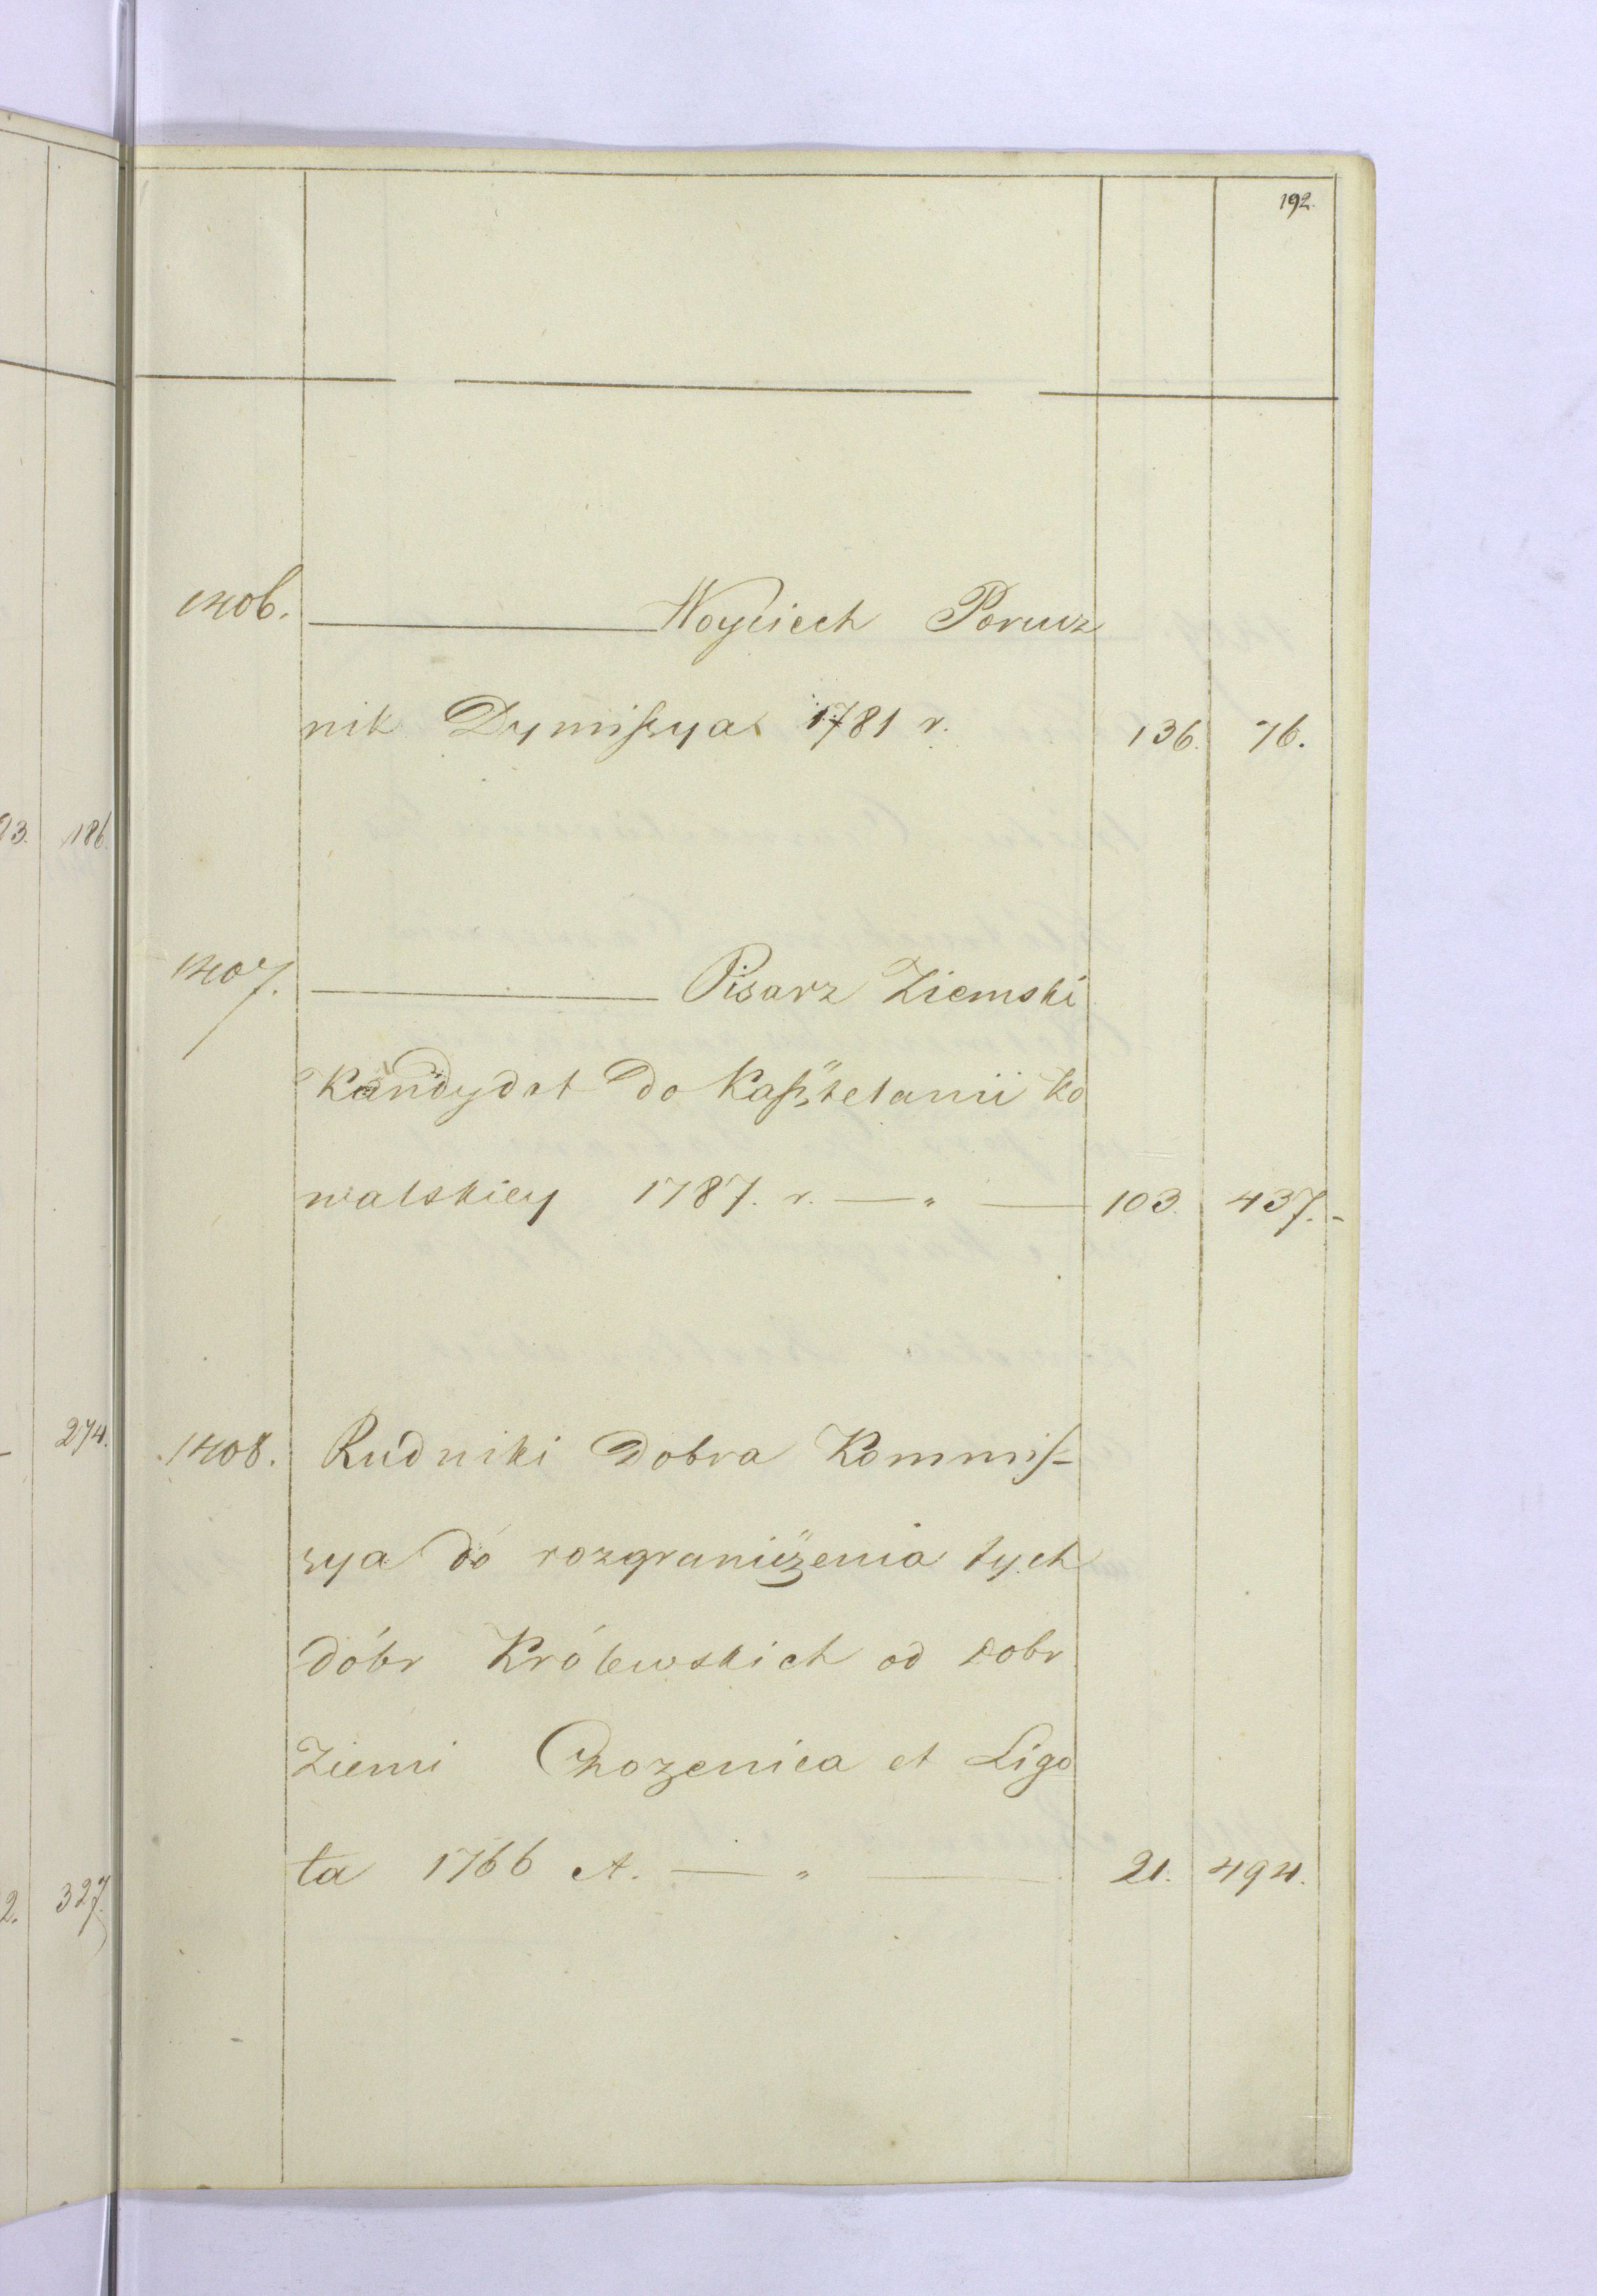 192.
1406. Woyciech Porucz
nik Dymissya 1781 r. 136. 76.
23. 186.
1407. Pisarz Ziemski
Kandydat do Kasztelanii Ko
walskiey 1787. r. — „ — 103. 437.-
274.
1408. Rudniki Dobra Kommis-
sya do rozgraniczenia tych
dóbr Królewskich od dobr
Ziemi et Ligo
ta 1766 A. — „ — 21. 494.
2. 327.